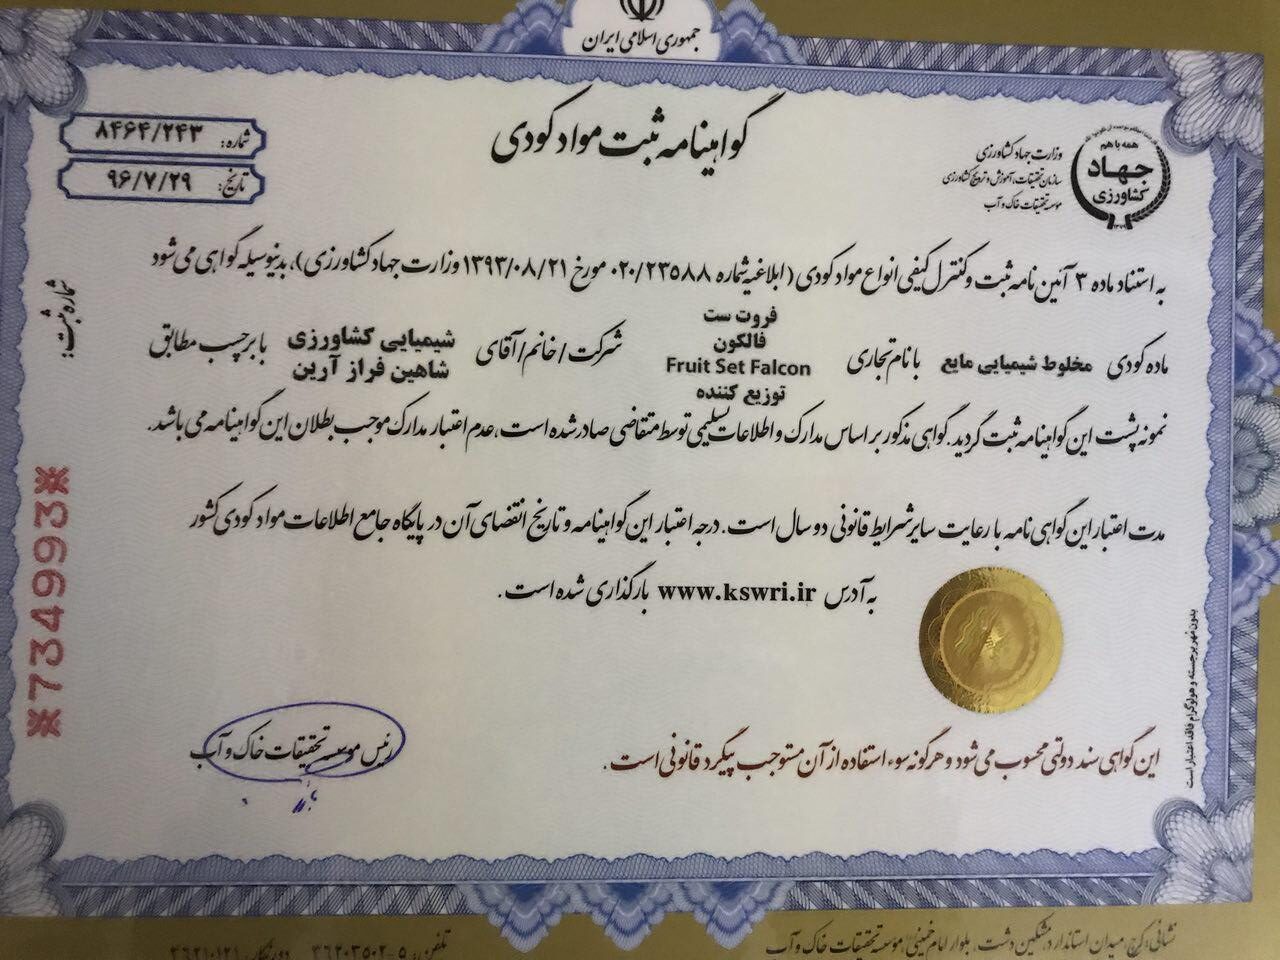 جمهوری اسلامی ایران
گواهینامه ثبت مواد کودی
شماره: ۸۴۶۴/۲۴۳
تاریخ: ۹۶/۷/۲۹
همه با هم
جهاد
کشاورزی
وزارت جهاد کشاورزی
سازمان تحقیقات، آموزش و ترویج کشاورزی
موسسه تحقیقات خاک و آب
به استناد ماده ۳ آئین نامه ثبت و کنترل کیفی انواع مواد کودی (ابلاغیه شماره ۰۲۰/۲۳۵۸۸ مورخ ۱۳۹۳/۰۸/۲۱ وزارت جهاد کشاورزی)، بدینوسیله گواهی می شود
ماده کودی مخلوط شیمیایی مایع با نام تجاری فروت ست فالکون Fruit Set Falcon توزیع کننده شرکت/خانم/آقای شیمیایی کشاورزی شاهین فراز آرین با برچسب مطابق
نمونه پشت این گواهینامه ثبت گردید. گواهی مذکور بر اساس مدارک و اطلاعات تسلیمی توسط متقاضی صادر شده است، عدم اعتبار مدارک موجب بطلان این گواهینامه می باشد.
مدت اعتبار این گواهی نامه با رعایت سایر شرایط قانونی دو سال است. درجه اعتبار این گواهینامه و تاریخ انقضای آن در پایگاه جامع اطلاعات مواد کودی کشور
به آدرس www.kswri.ir بارگذاری شده است.
این گواهی سند دولتی محسوب می شود و هرگونه سوء استفاده از آن مستوجب پیگرد قانونی است.
رئیس موسسه تحقیقات خاک و آب
شماره ثبت:
*734993*
بدون مُهر برجسته و هولوگرام فاقد اعتبار است
نشانی: کرج، میدان استاندارد، مشکین دشت، بلوار امام خمینی، موسسه تحقیقات خاک و آب
تلفن: ۵-۳۶۲۰۳۵۰۲ دورنگار: ۳۶۲۱۰۱۲۱